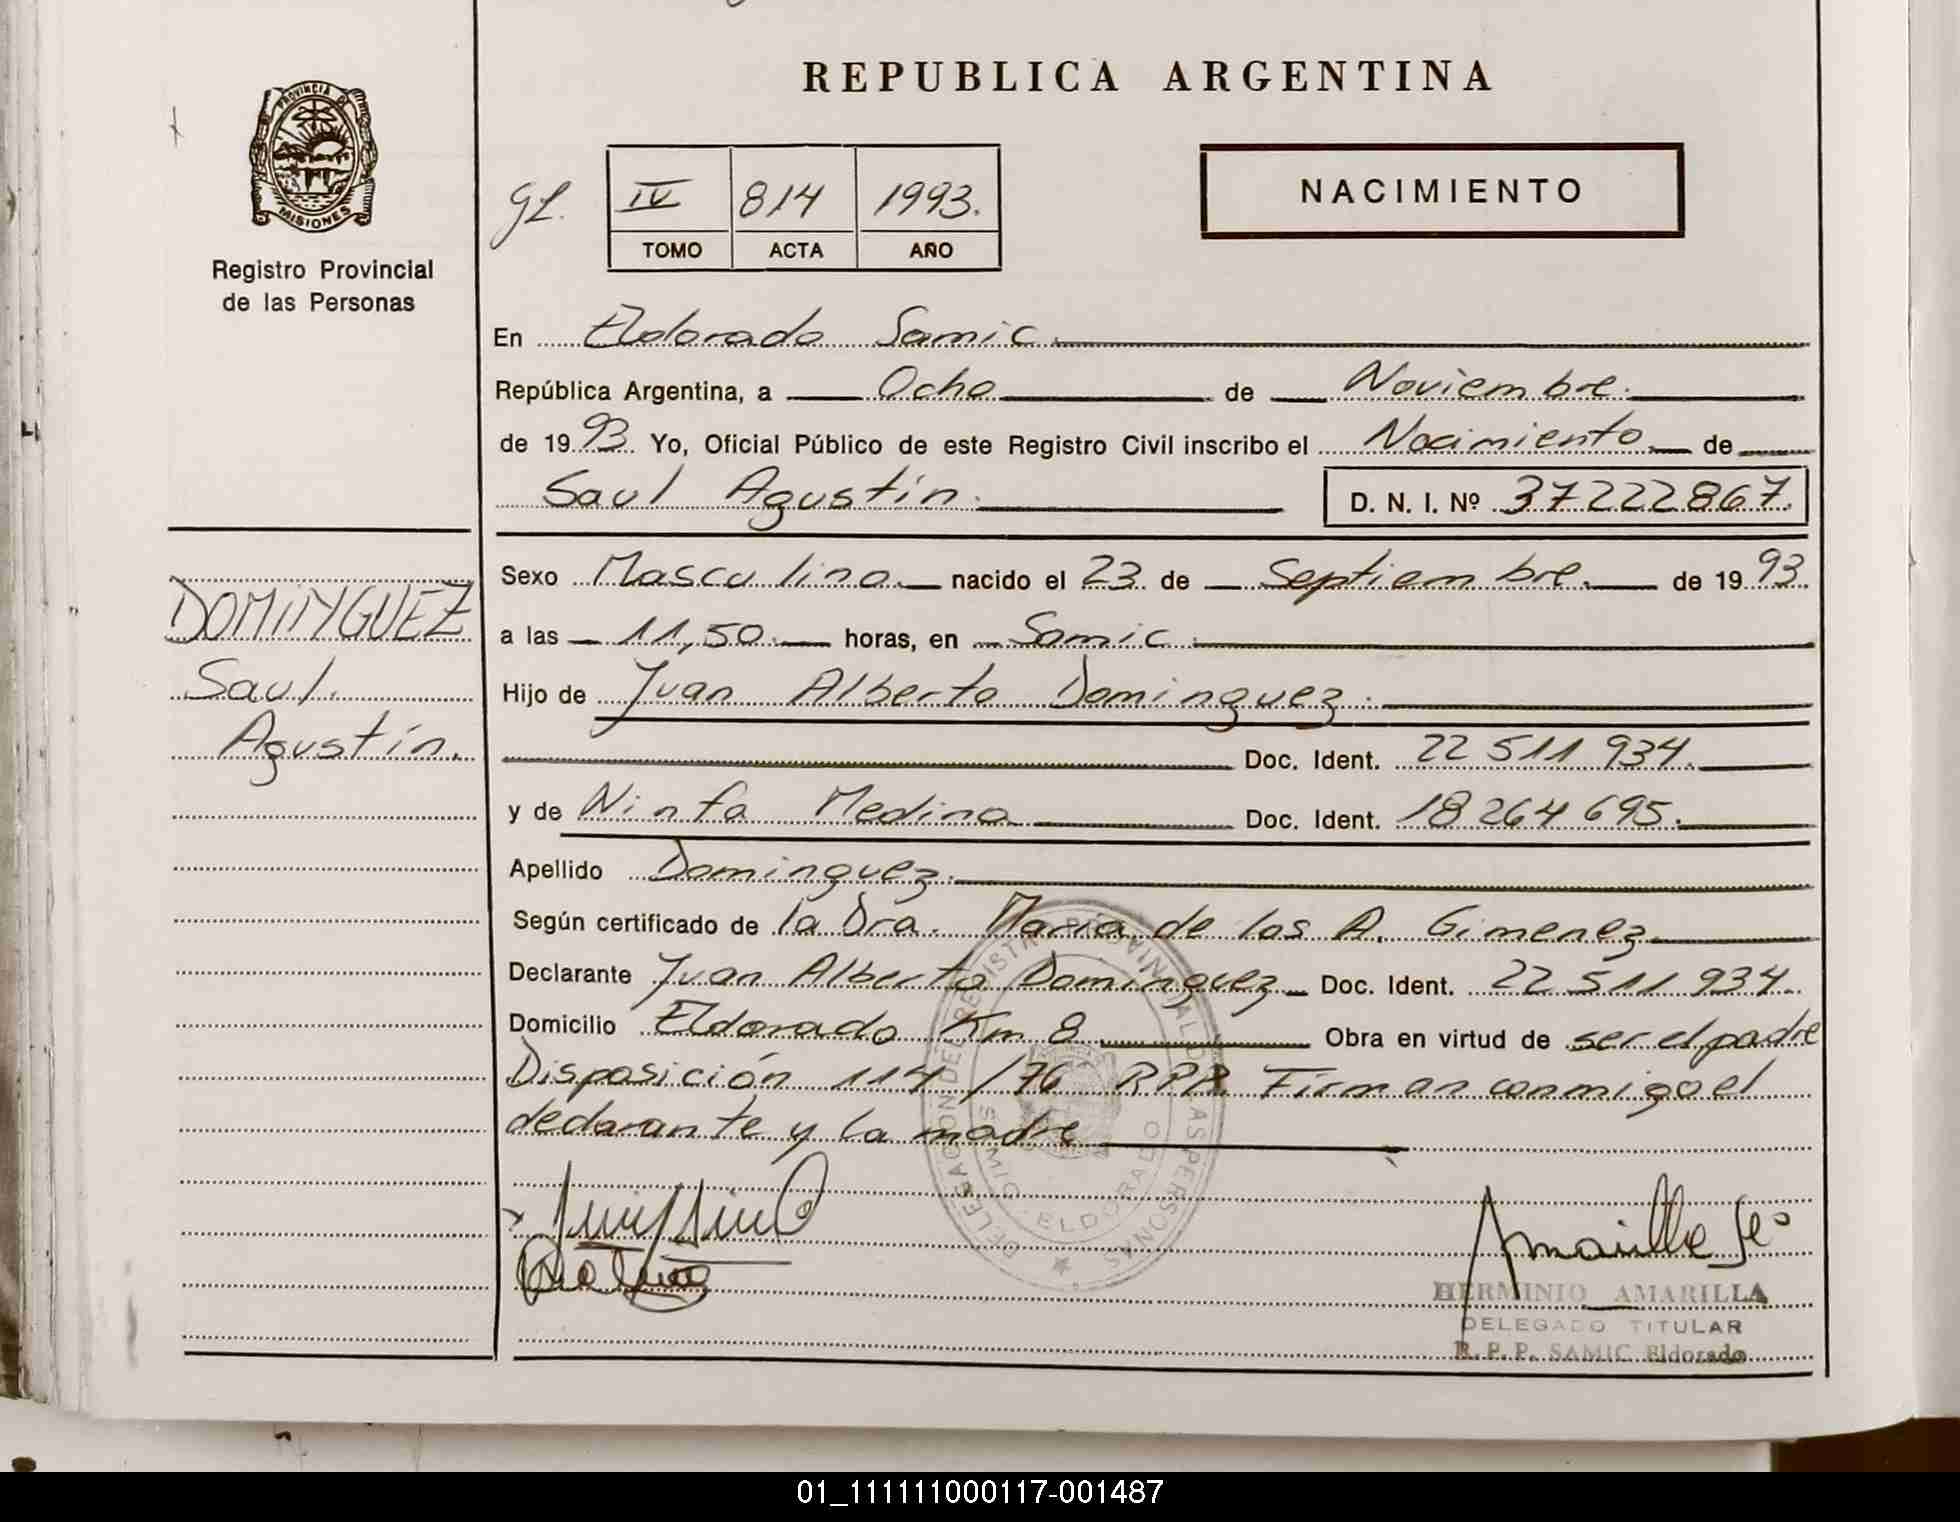 REPUBLICA ARGENTINA
PROVINCIA DE MISIONES
Registro Provincial
de las Personas
IV 814 1993.
TOMO ACTA AÑO
NACIMIENTO
En Eldorado Samic
República Argentina, a Ocho de Noviembre.
de 1993. Yo, Oficial Público de este Registro Civil inscribo el Nacimiento de
Saul Agustín. D. N. I. Nº 37222867.
DOMINGUEZ
Saul
Agustín.
Sexo Masculino. nacido el 23 de Septiembre. de 1993.
a las 11,50. horas, en Samic.
Hijo de Juan Alberto Dominguez.
Doc. Ident. 22 511 934.
y de Ninfa Medina Doc. Ident. 18 264 695.
Apellido Dominguez.
Según certificado de la Dra. María de los A. Gimenez.
Declarante Juan Alberto Dominguez Doc. Ident. 22 511 934.
Domicilio Eldorado Km 8 Obra en virtud de ser el padre
Disposición 114/76 RPP. Firman conmigo el
declarante y la madre
DELEGACION DEL REGISTRO PROVINCIAL DE LAS PERSONAS
ELDORADO
Amarilla
HERMINIO AMARILLA
DELEGADO TITULAR
R. P. P. SAMIC Eldorado
01_111111000117-001487